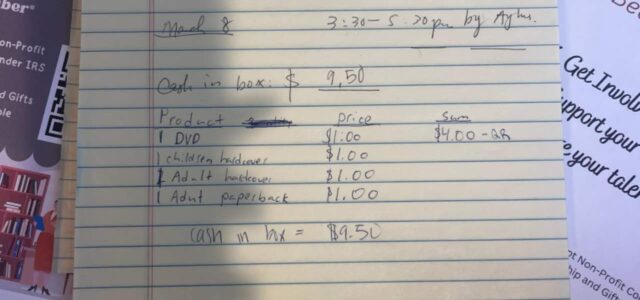 March 8 3:30-5:20pm by
Cash in box: $ 9.50
Product price sum
1 DVD $1.00 $4.00-QR
1 children hardcover $1.00
1 Adult hardcover $1.00
1 Adult paperback $1.00
cash in box = $9.50
ber®
on-Profit
nder IRS
d Gifts
ble
Get Invol
upport your
e your talen
ot Non-Profit Co
hip and Gif